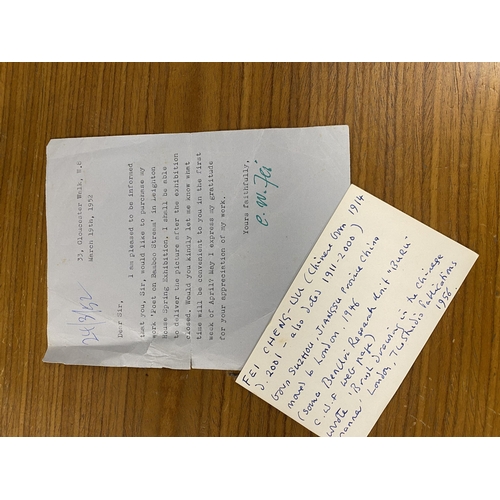 33, Gloucester Walk, W.8
March 19th, 1952
24/3/52
Dear Sir,
I am pleased to be informed
that you, Sir, would like to purchase my
work 'Poet on Bamboo Stream' in Leighton
House Spring Exhibition. I shall be able
to deliver the picture after the exhibition
closed. Would you kindly let me know what
time will be convenient to you in the first
week of April? May I express my gratitude
for your appreciation of my work.
Yours faithfully,
C. W. Fei
FEI CHENG-WU (Chinese born 1914
d. 2001 - also dated 1911-2000)
born SUZHOU JIANGSU Province China
moved to London. 1946
(source Benezit Research Unit "BURU"
C.W.F web page)
wrote 'Brush drawing in the Chinese
manner', London, Studio Publications
1956.